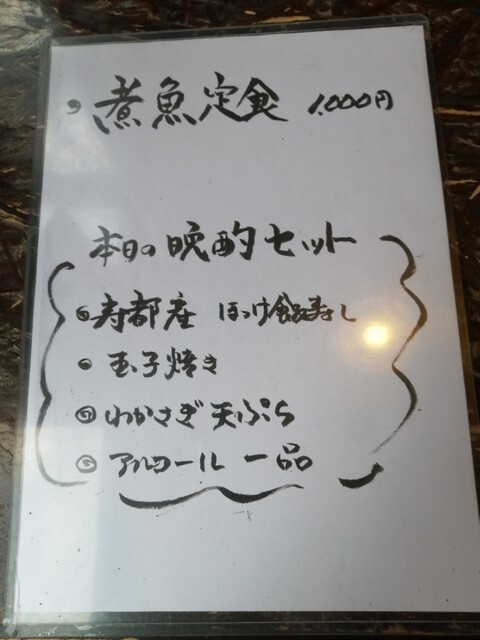 煮魚定食 1,000円
本日の晩酌セット
寿都産 ほっけ飯寿し
玉子焼き
わかさぎ天ぷら
アルコール一品